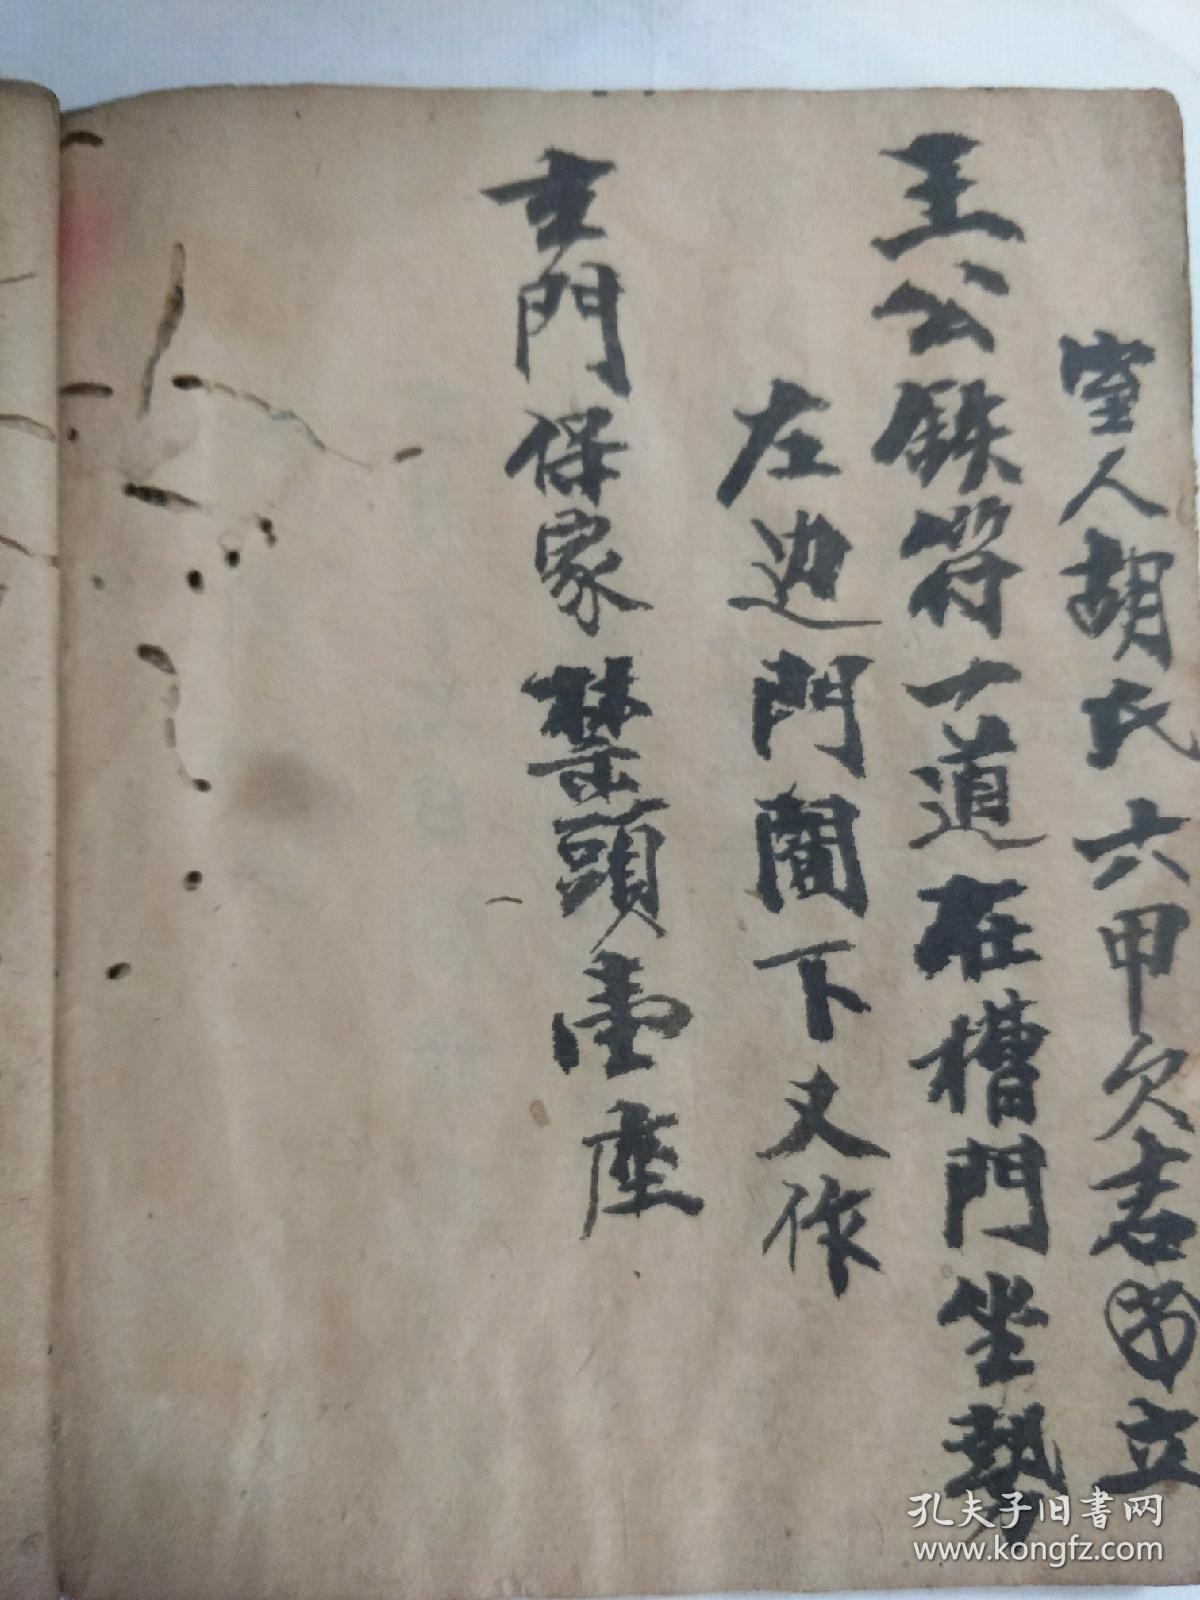 室人胡氏六甲欠吉立
王公鉄符一道在槽門坐勢
左边門閣下丈作
玄門保家禁頭壹座
孔夫子旧书网
www.kongfz.com